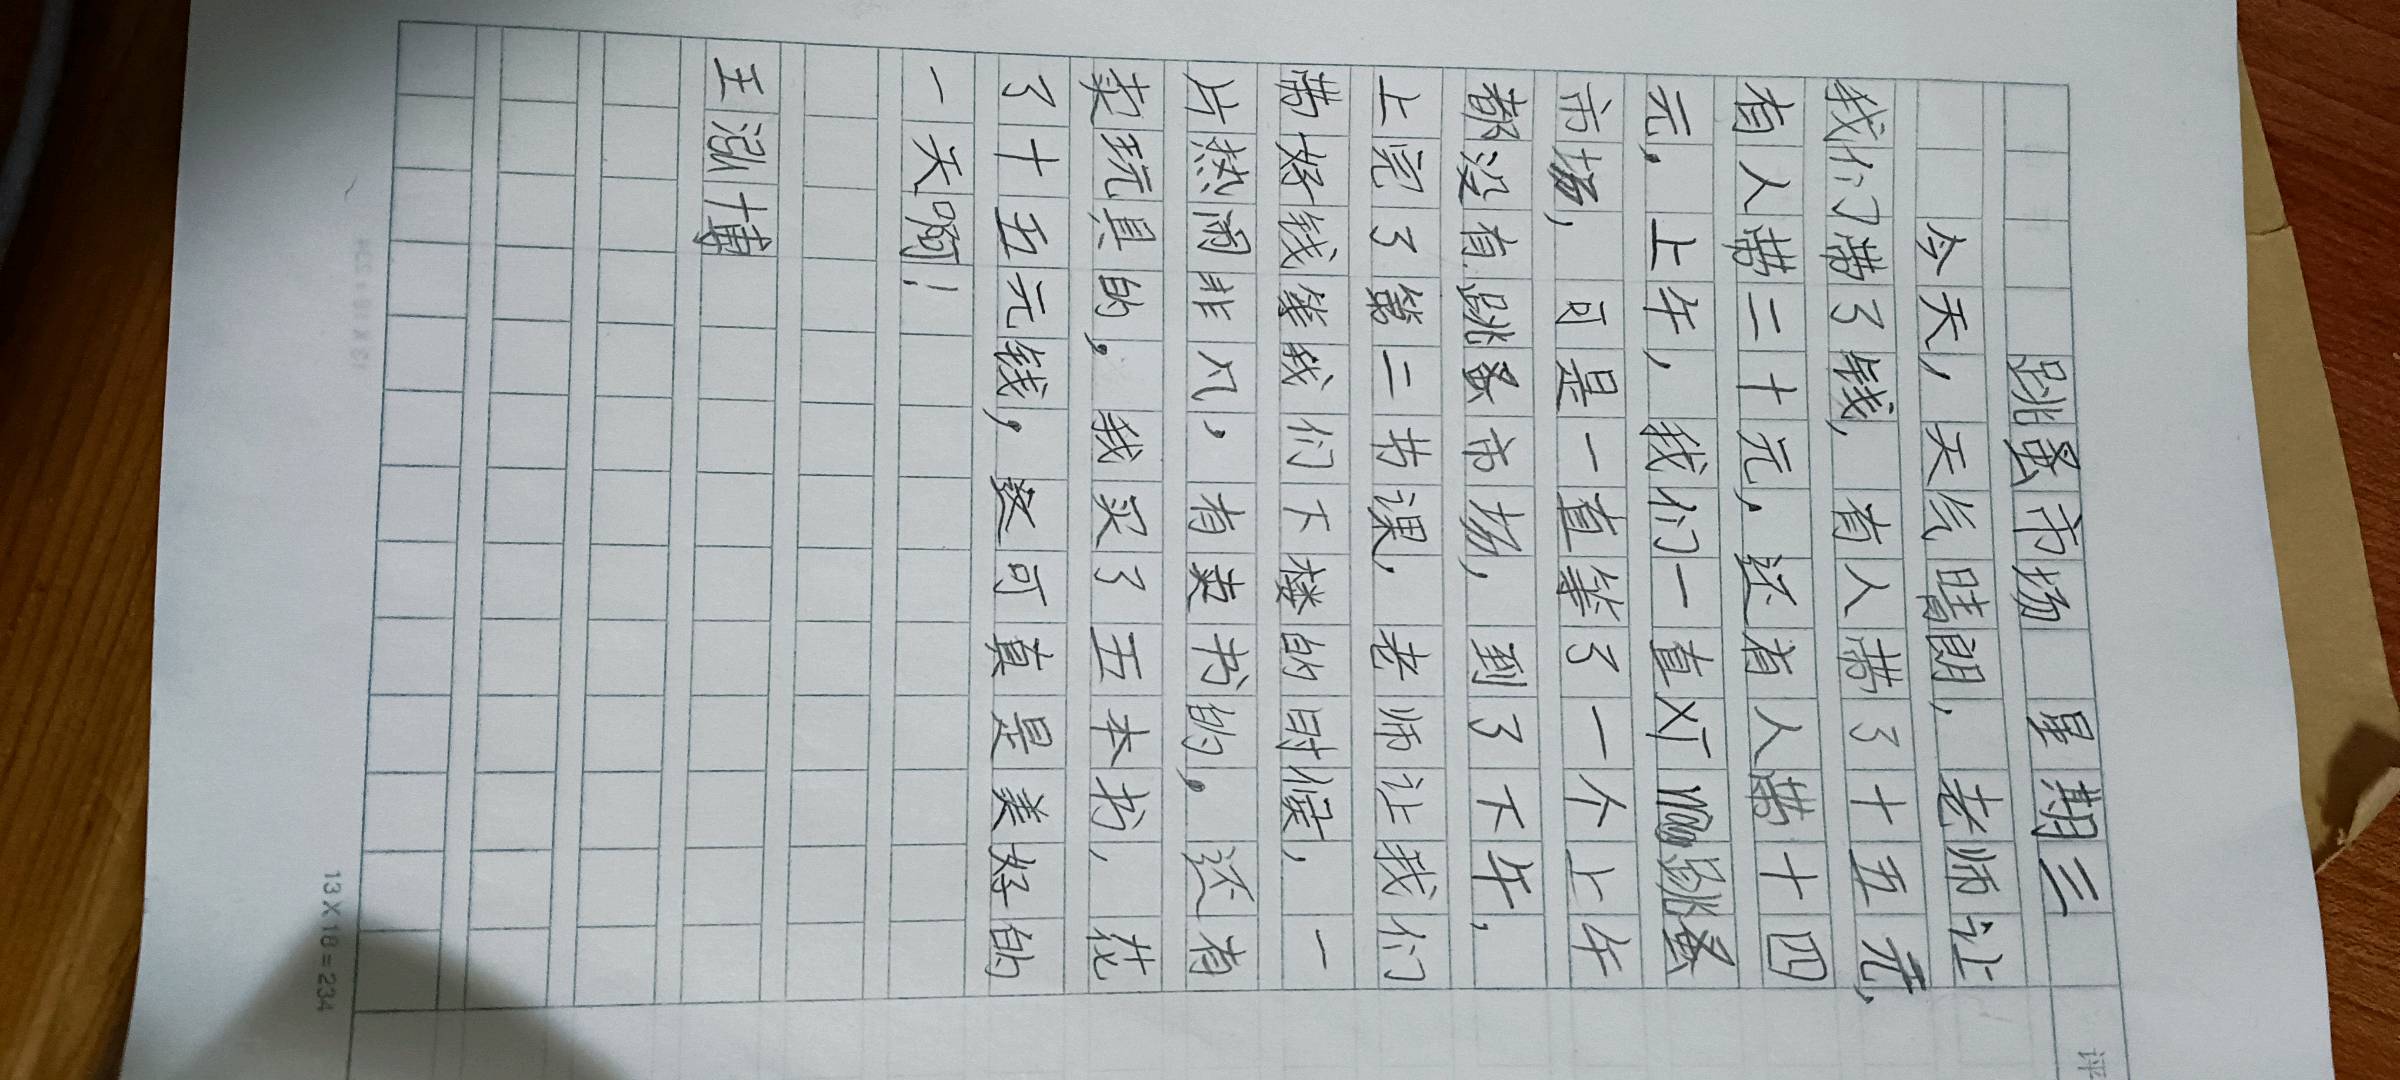 跳蚤市场 星期三
今天，天气晴朗，老师让
我们带了钱，有人带了十五元，
有人带二十元，还有人带十四
元，上午，我们一直对跳蚤
市场，可是一直等了一个上午
都没有跳蚤市场，到了下午，
上完了第二书课，老师让我们
带好钱等我们下楼的时候，一
片热闹非凡，有卖书的，还有
卖玩具的，我买了五本书，花
了十五元钱，这可真是美好的
一天啊！
王泓博
13×18=234
评